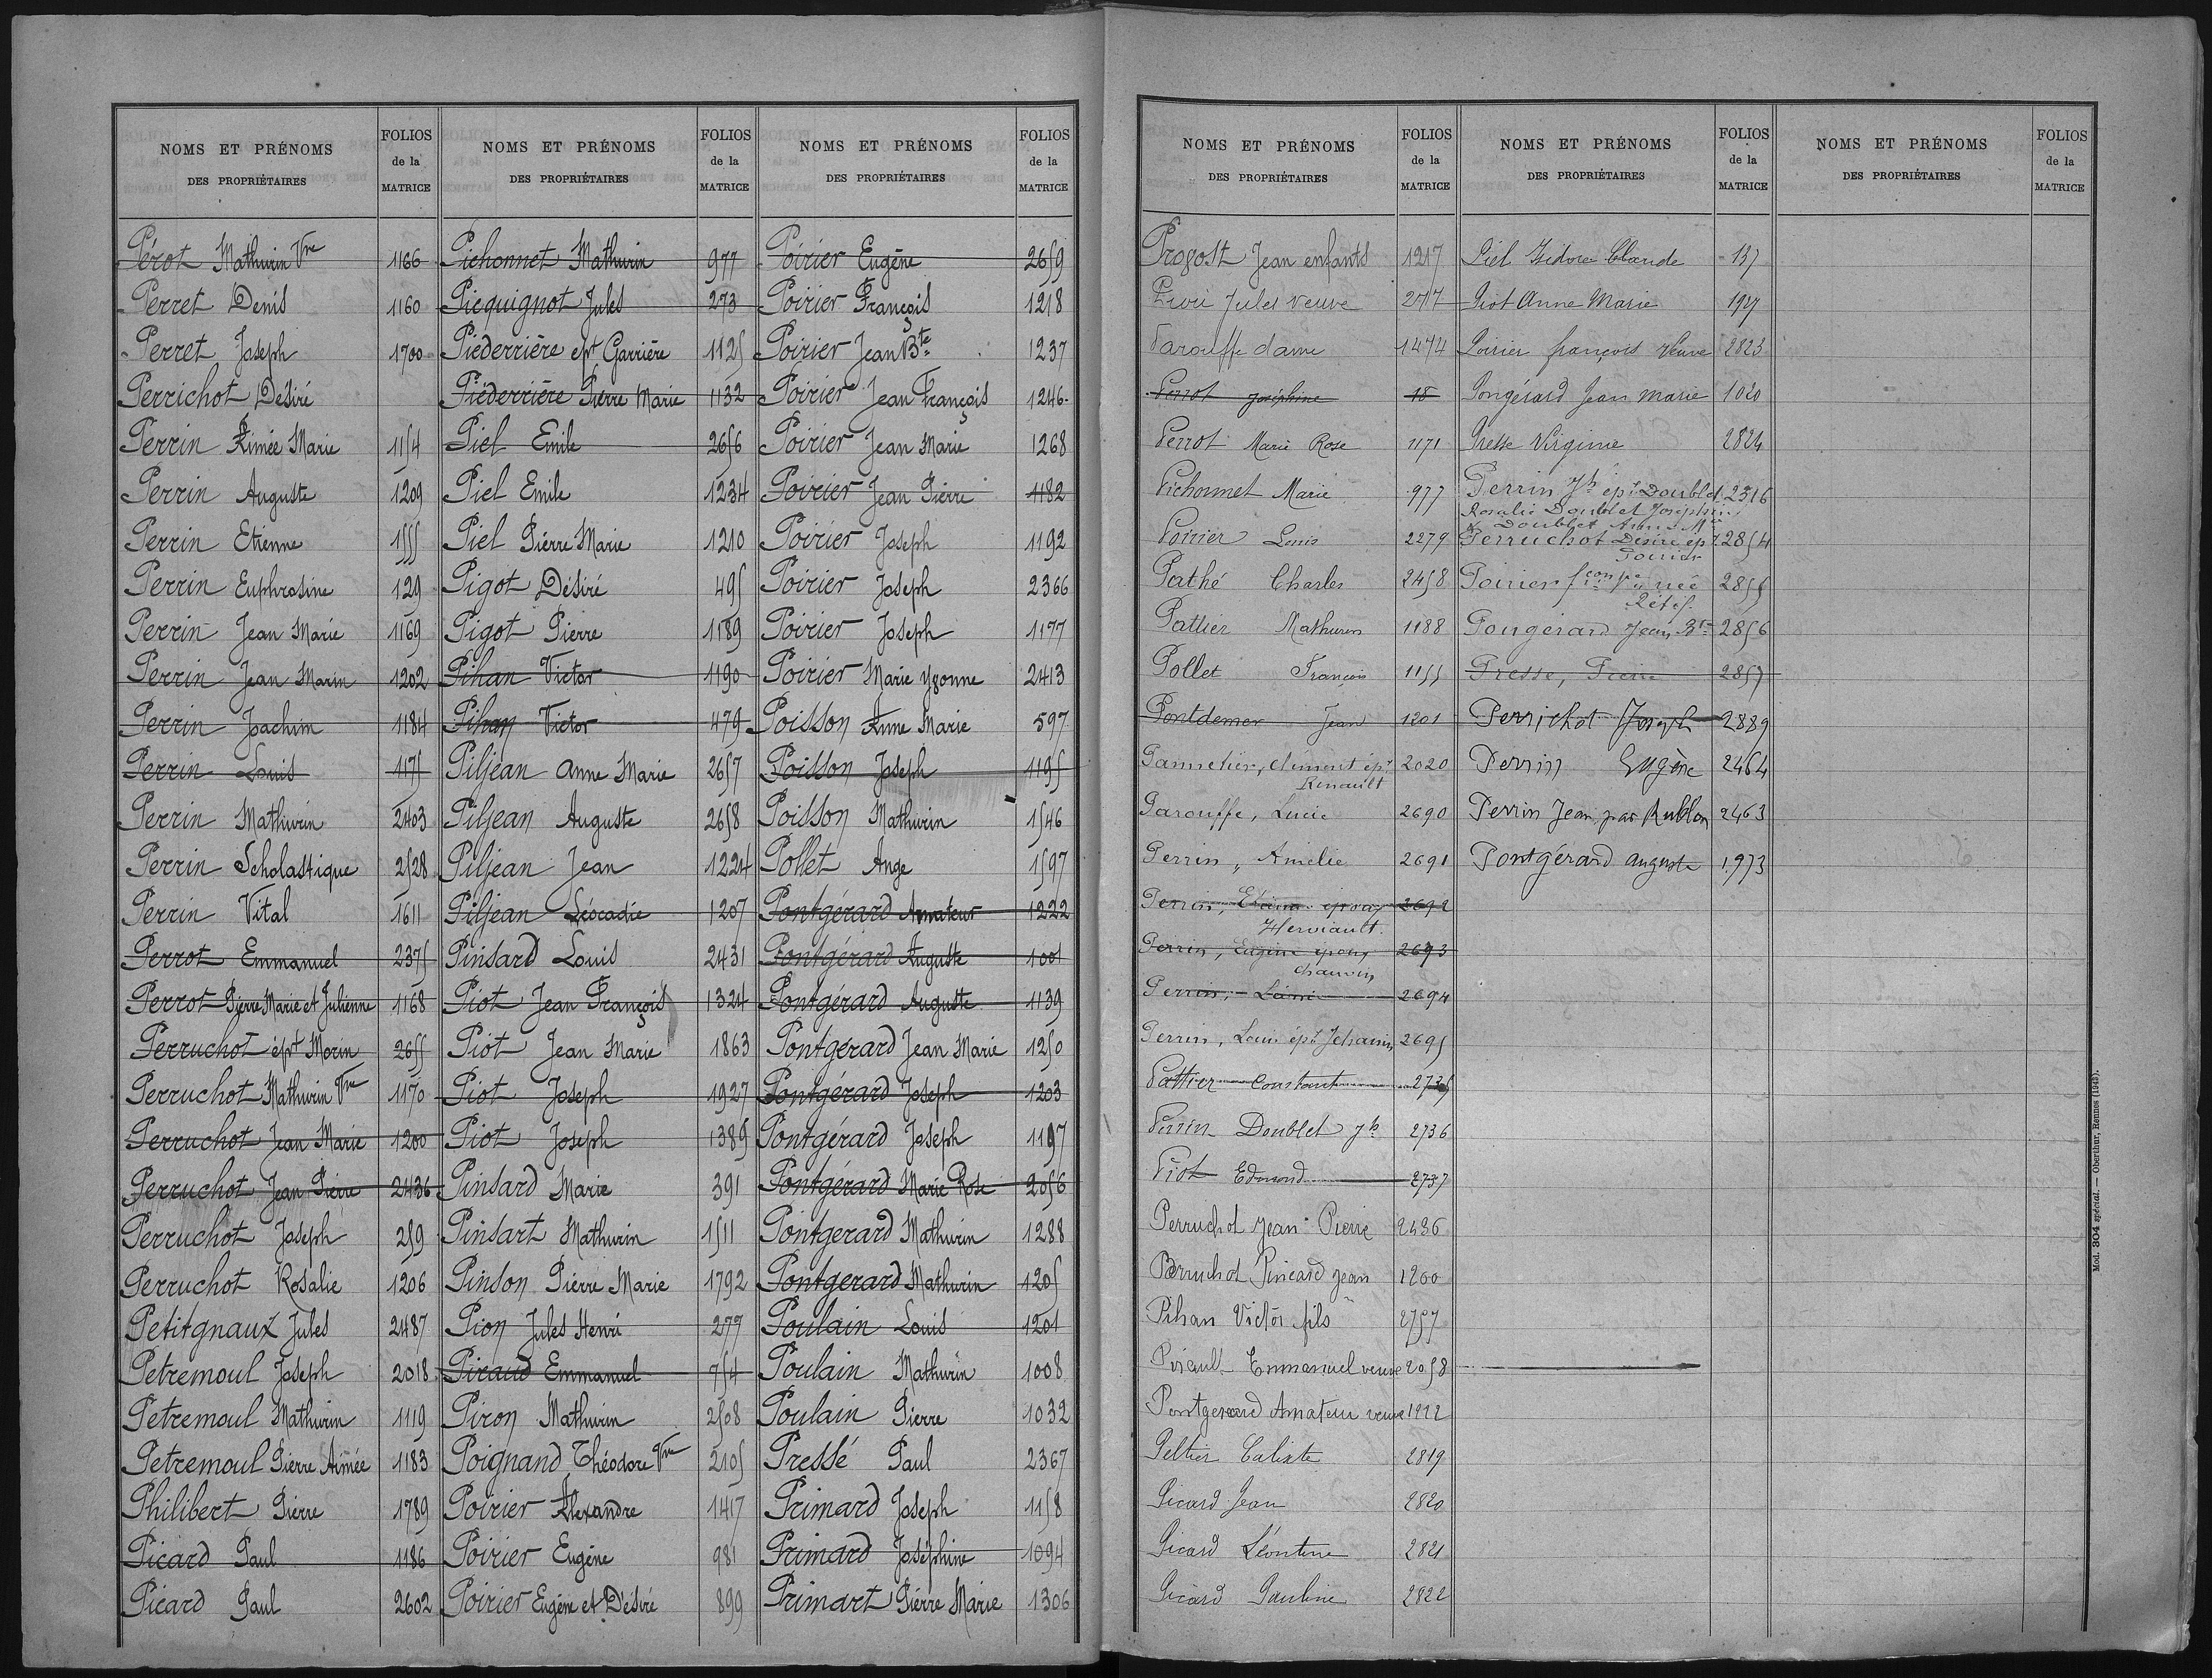 NOMS ET PRÉNOMS
DES PROPRIÉTAIRES
FOLIOS
de la
MATRICE
Pérot Mathurin Vve 1166
Perret Denis 1160
Perret Joseph 1700
Perrichot Désiré
Perrin Aimée Marie 1154
Perrin Auguste 1209
Perrin Etienne 1555
Perrin Euphrosine 129
Perrin Jean Marie 1169
Perrin Jean Marin 1202
Perrin Joachim 1184
Perrin Louis 1175
Perrin Mathurin 2403
Perrin Scholastique 2528
Perrin Vital 1611
Perrot Emmanuel 2375
Perrot Pierre Marie et Julienne 1168
Perruchot épx Morin 2655
Perruchot Mathurin Vve 1170
Perruchot Jean Marie 1200
Perruchot Jean Pierre 2436
Perruchot Joseph 259
Perruchot Rosalie 1206
Petitgnaux Jules 2487
Petremoul Joseph 2018
Petremoul Mathurin 1119
Petremoul Pierre Aimée 1183
Philibert Pierre 1789
Picard Paul 1186
Picard Paul 2602
NOMS ET PRÉNOMS
DES PROPRIÉTAIRES
FOLIOS
de la
MATRICE
Pichonnet Mathurin 977
Picquignot Jules 273
Piederrière épx Garrière 1125
Piederrière Pierre Marie 1132
Piel Emile 2656
Piel Emile 1234
Piel Pierre Marie 1210
Pigot Désiré 495
Pigot Pierre 1189
Pihan Victor 1190
Pihan Victor 479
Piljean Anne Marie 2657
Piljean Auguste 2658
Piljean Jean 1224
Piljean Léocadie 1207
Pinsard Louis 2431
Piot Jean François 1324
Piot Jean Marie 1863
Piot Joseph 1927
Piot Joseph 1389
Pinsard Marie 391
Pinsart Mathurin 1511
Pinson Pierre Marie 1792
Pion Jules Henri 277
Piraud Emmanuel 754
Piron Mathurin 2508
Poignand Théodore Vve 2105
Poirier Alexandre 1417
Poirier Eugène 981
Poirier Eugène et Désiré 899
NOMS ET PRÉNOMS
DES PROPRIÉTAIRES
FOLIOS
de la
MATRICE
Poirier Eugène 2659
Poirier François 1218
Poirier Jean Bte 1237
Poirier Jean François 1246
Poirier Jean Marie 1268
Poirier Jean Pierre 1182
Poirier Joseph 1192
Poirier Joseph 2366
Poirier Joseph 1177
Poirier Marie Yvonne 2413
Poisson Anne Marie 597
Poisson Joseph 1195
Poisson Mathurin 1546
Pollet Ange 1597
Pontgérard Amateur 1222
Pontgérard Auguste 1001
Pontgérard Auguste 1139
Pontgérard Jean Marie 1250
Pontgérard Joseph 1203
Pontgérard Joseph 1197
Pontgérard Marie Rose 2056
Pontgerard Mathurin 1288
Pontgerard Mathurin 1205
Poulain Louis 1201
Poulain Mathurin 1008
Poulain Pierre 1032
Pressé Paul 2367
Primard Joseph 1158
Primard Joséphine 1094
Primart Pierre Marie 1306
NOMS ET PRÉNOMS
DES PROPRIÉTAIRES
FOLIOS
de la
MATRICE
Provost Jean enfants 1217
Jules veuve
Parouffe dame 1474
Perrot Joséphine 18
Perrot Marie Rose 1171
Pichonnet Marie 977
Poirier Louis 2279
Pathé Charles 2458
Pattier Mathurin 1188
Pollet François 1155
Pontdemer Jean 1201
Pannetier, Clément épx 2020
Renault
Parouffe, Lucie 2690
Perrin, Amélie 2691
Perrin, époux 2692
Herviault.
Perrin, Eugène époux 2693
Chauvin
Perrin, 2694
Perrin, Louis épx Jehanin 2695
Pattier Constant 2735
Perrin Doublet Jh 2736
Piot Edmond 2737
Perruchot Jean Pierre 2436
Perruchot Pincard Jean 1200
Pihan Victor fils 2757
Pirault Emmanuel veuve 2058
Pontgerard Amateur veuve 1222
Peltier Calixte 2819
Picard Jean 2820
Picard Léontine 2821
Picard Pauline 2822
NOMS ET PRÉNOMS
DES PROPRIÉTAIRES
FOLIOS
de la
MATRICE
Piel Isidore Claude 137
Piot Anne Marie
Poirier françois Veuve 2823
Pongérard Jean Marie 1020
Presse Virginie 2824
Perrin Jh épx Doublet 2316
Rosalie Doublet Joséphine
& Doublet Anne Mie
Perruchot Désiré épx 2854
Poirier
Poirier née 2855
Rétif.
Pongerard Jean Bte 2856
Presse, Pierre 2857
Perrichot Joseph 2889
Perrin Eugène 2464
Perrin Jean, par Rublon 2463
Pontgérard auguste 1973
NOMS ET PRÉNOMS
DES PROPRIÉTAIRES
FOLIOS
de la
MATRICE
Mod. 304 spécial. — Oberthur, Rennes (1943).